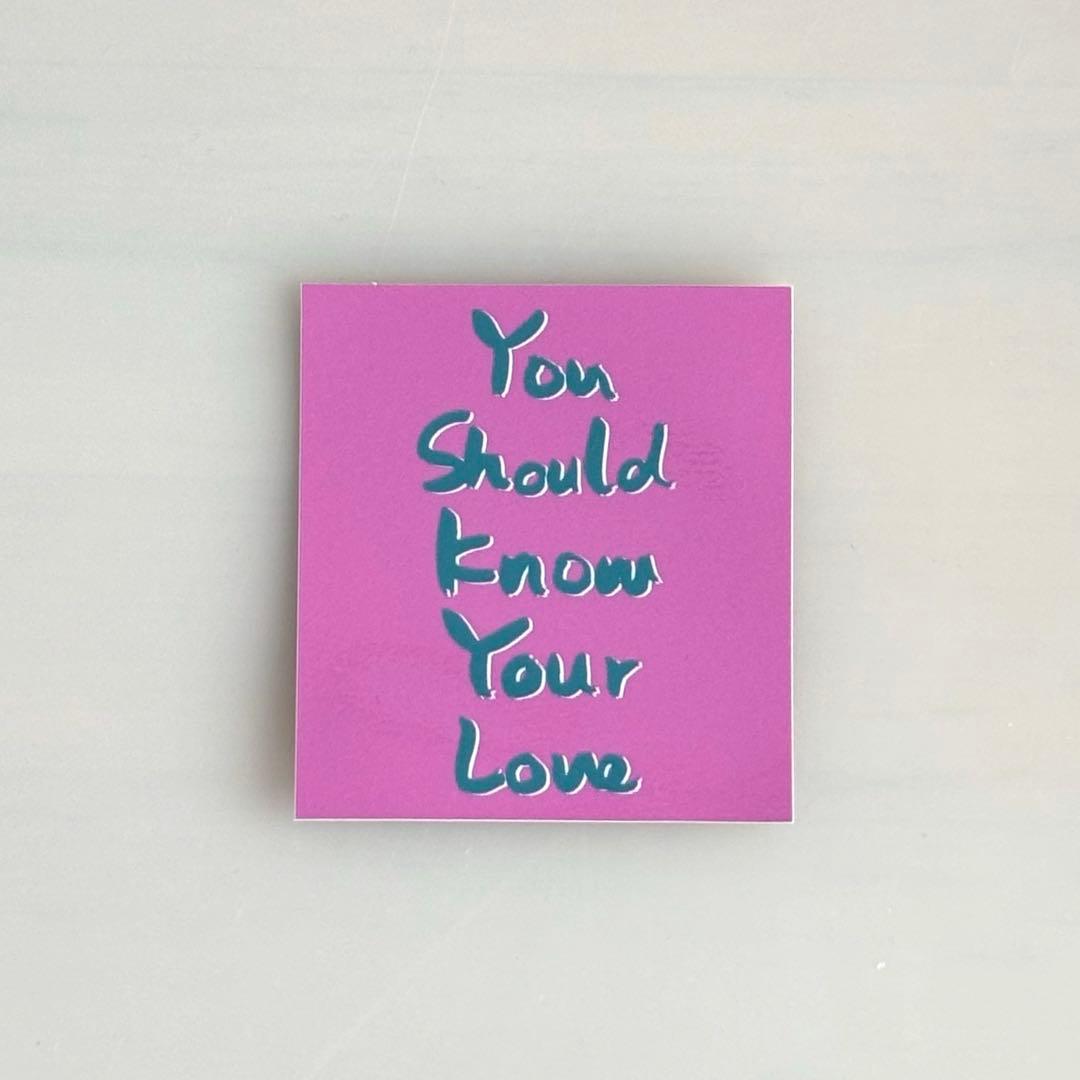 You
Should
Know
Your
Love